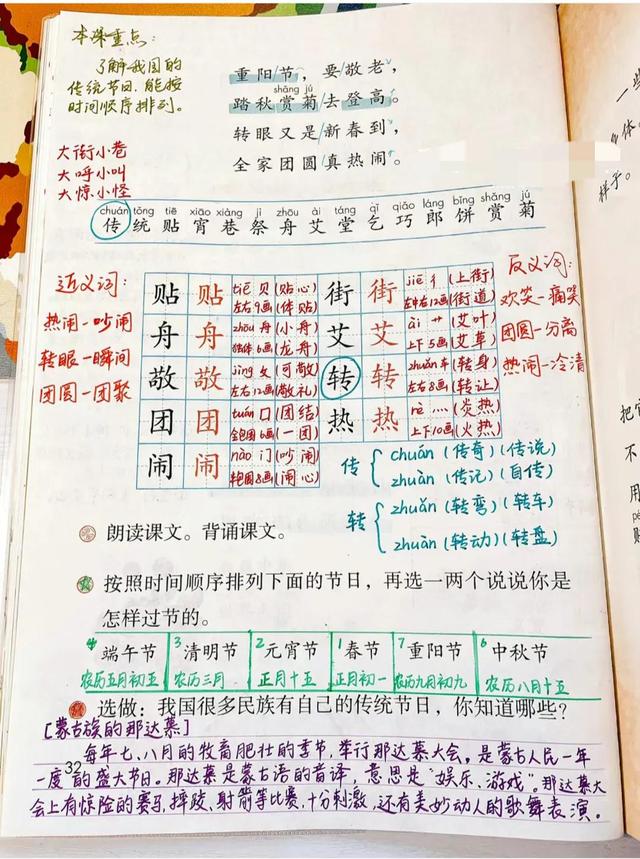 本课重点:
了解我国的
传统节日,能按
时间顺序排列。
重阳节/,要/敬老,
shǎng jú
踏秋/赏菊/去登高。
转眼又是/新春到,
全家团圆/真热闹。
大街小巷
大呼小叫
大惊小怪
chuán tǒng tiē xiāo xiàng jì zhōu ài táng qǐ qiǎo láng bǐng shǎng jú
传 统 贴 宵 巷 祭 舟 艾 堂 乞 巧 郎 饼 赏 菊
近义词:
热闹—吵闹
转眼—瞬间
团圆—团聚
贴 贴 tiē 贝 (贴心)
左右9画 (体贴)
舟 舟 zhōu 舟 (小舟)
独体6画 (龙舟)
敬 敬 jìng 攵 (可敬)
左右12画 (敬礼)
团 团 tuán 囗 (团结)
全包围6画 (一团)
闹 闹 nào 门 (吵闹)
半包围8画 (闹心)
街 街 jiē 彳 (上街)
左中右12画 (街道)
艾 艾 ài 艹 (艾叶)
上下5画 (艾草)
转 转 zhuǎn 车 (转身)
左右8画 (转让)
热 热 rè 灬 (炎热)
上下10画 (火热)
反义词:
欢笑—痛哭
团圆—分离
热闹—冷清
传 chuán (传奇) (传说)
zhuàn (传记) (自传)
转 zhuǎn (转弯) (转车)
zhuàn (转动) (转盘)
朗读课文。背诵课文。
按照时间顺序排列下面的节日,再选一两个说说你是
怎样过节的。
4 端午节 3 清明节 2 元宵节 1 春节 7 重阳节 6 中秋节
农历五月初五 农历三月 正月十五 正月初一 农历九月初九 农历八月十五
选做:我国很多民族有自己的传统节日,你知道哪些?
[蒙古族的那达慕]
每年七、八月的牧畜肥壮的季节,举行那达慕大会。是蒙古人民一年
一度的盛大节日。那达慕是蒙古语的音译,意思是"娱乐、游戏"。那达慕大
会上有惊险的赛马,摔跤、射箭等比赛,十分刺激,还有美妙动人的歌舞表演。
32
一些
体。
样子。
把它
不
用